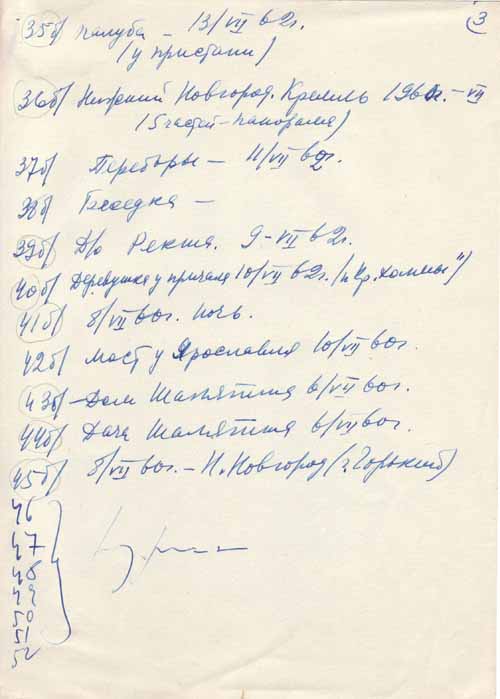 3
35б) палуба – 13/VII 62г.
(у пристани)
36б) Нижний Новгород. Кремль 1960г. – VII
(5 частей – панорама)
37б) Переборы – 11/VII 62г.
38б) Беседка –
39б) Д/о Решма. 9-VII 62г.
40б) Деревушка у причала 10/VII 62г. (п. "Кр. холмы")
41б) 8/VII 60г. ночь.
42б) мост у Ярославля 10/VII 60г.
43б) – Дом Шаляпина 6/VII 60г.
44б) Дача Шаляпина 6/VII 60г.
45б) 8/VII 60г. – Н. Новгород (г. Горький)
46
47
48
49
50
51
52